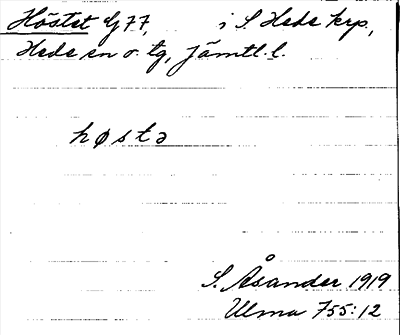 Höstet G 77, i S. Hede krp.,
Hede sn o. tg, Jämtl. l.
høstə
S. Åsander 1919
Ulma 755:12